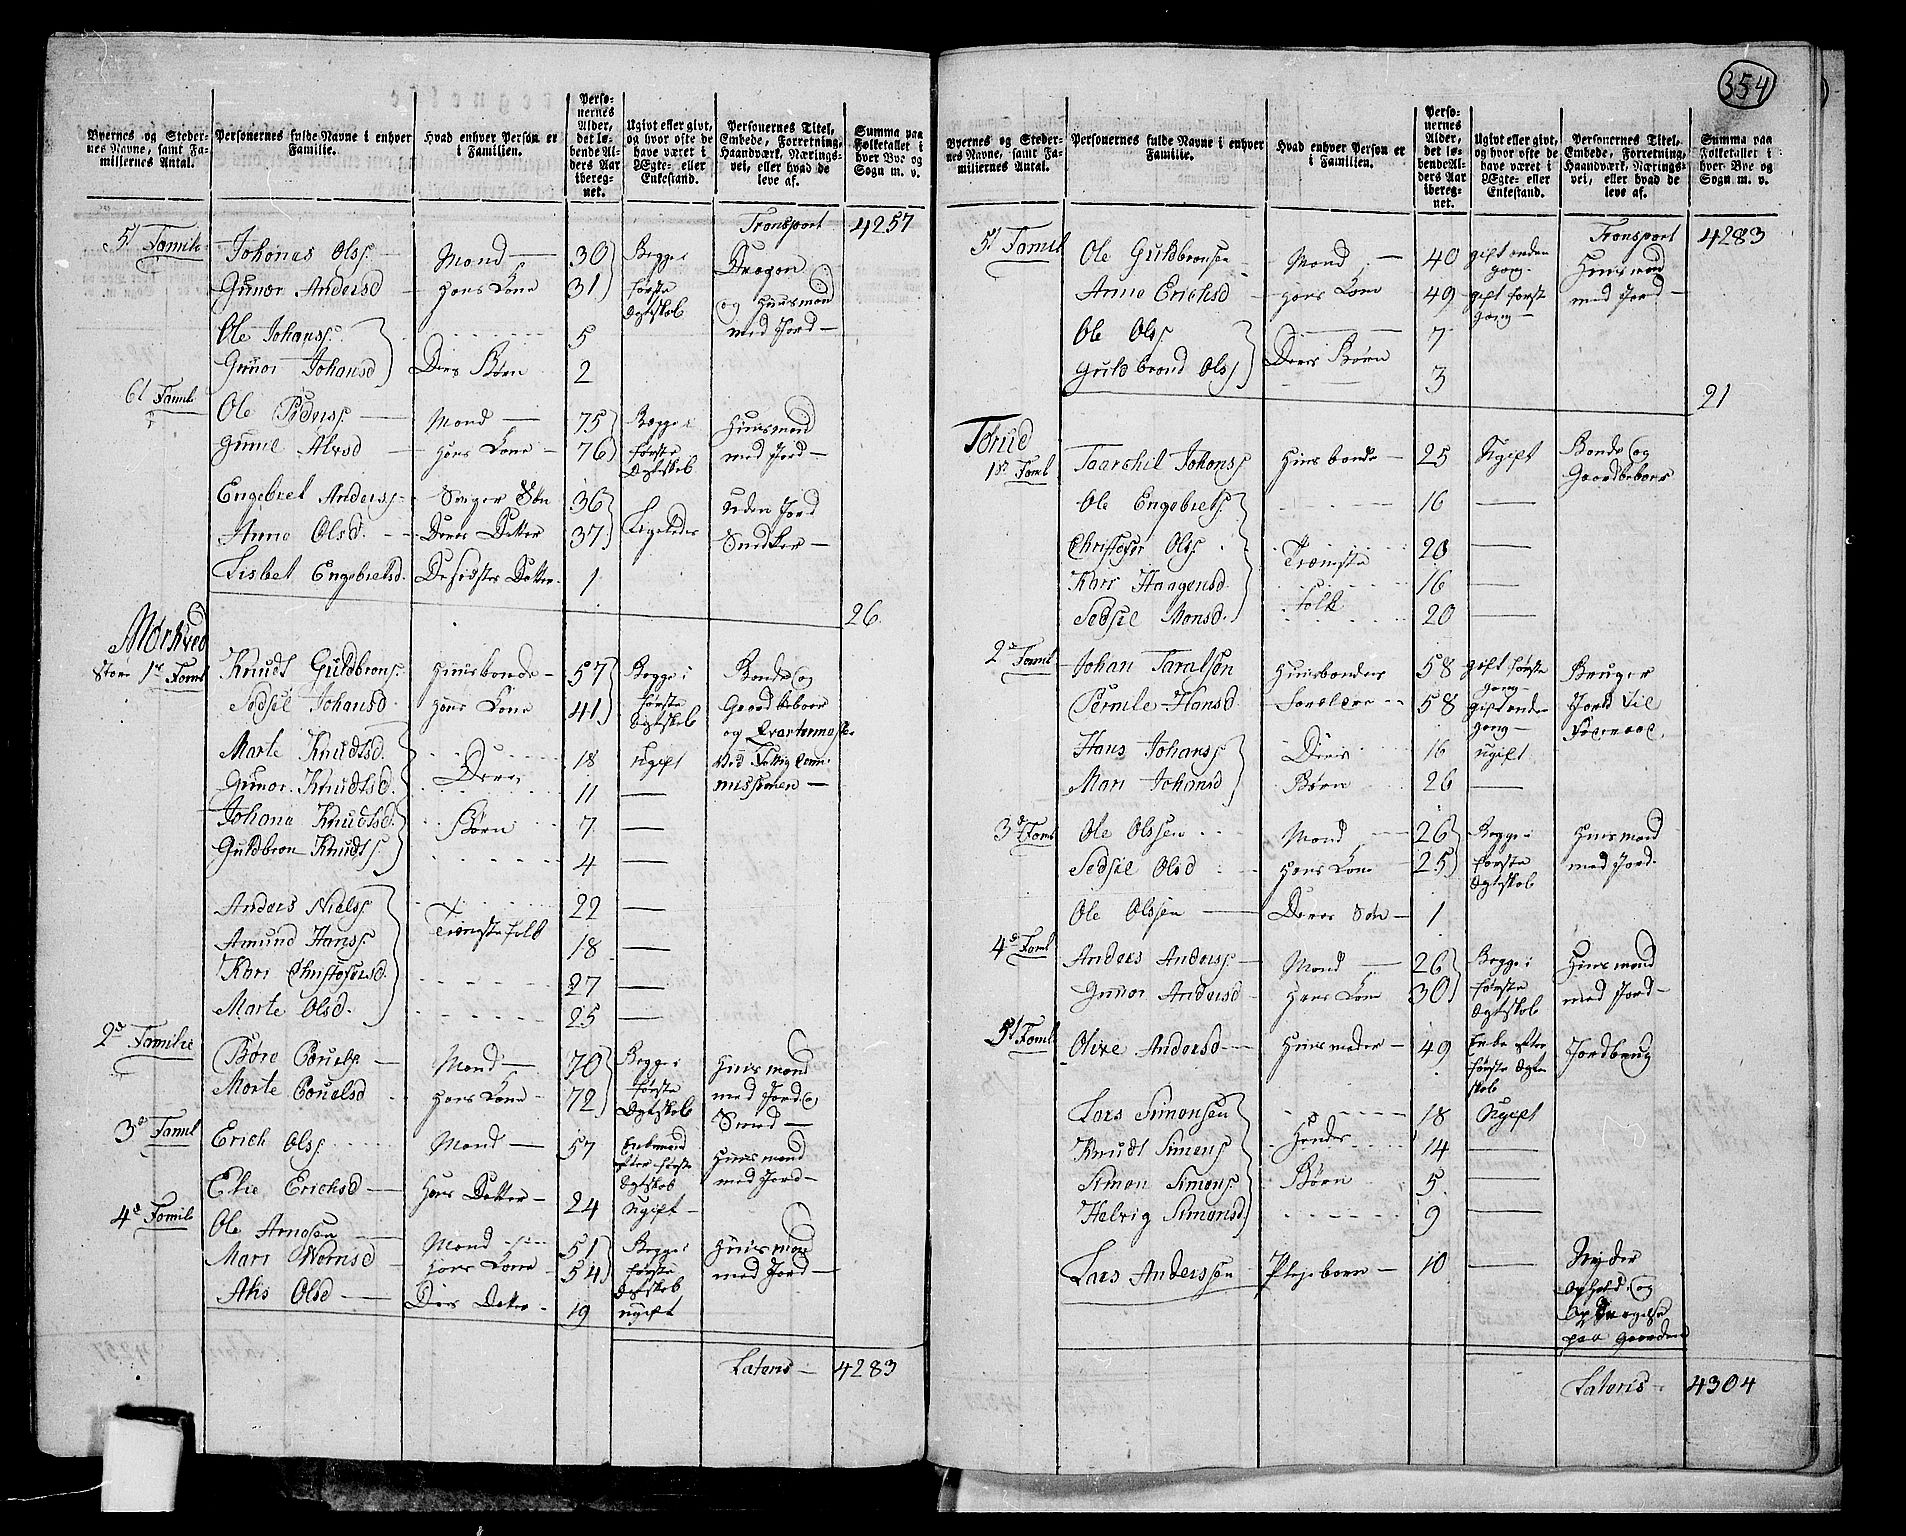 354
Byernes og Steder-
nes Navne, samt Fa-
miliernes Antal.
Personernes fulde Navne i enhver
Familie.
Hvad enhver Person er
i Familien.
Perso-
nernes
Alder,
det lø-
bende Al-
ders Aar
ibereg-
net.
Ugivt eller givt,
og hvor ofte de
have været i
Ægte- eller
Enkestand.
Personernes Titel,
Embede, Forretning,
Haandværk, Nærings-
vei, eller hvad de
leve af.
Summa paa
Folketallet i
hver Bye og
Sogn m. v.
Transport 4257
5t Familie Johanes Olss. Mand 30 Begge i Dragon
Gunor Andersd hans Kone 31 første og Huusmand
Ægtskab med Jord
Ole Johanss. 5
Gunor Johansd Deres Børn 2
6t Famil Ole Pederss Mand 75 Begge i Huusmand
Gunil Alvsd hans Kone 76 første med Jord
Ægtskab
Engebret Anderss Svoger Søn 36 uden Jord
Anne Olsd. Deres Datter 37 Ligeledes Snedker
Lisbet Engebretsd. De sidstes Datter 1
26
Mørkved
Store 1te Faml Knudt Guldbrons. Huusbonde 57 Begge i Bonde og
Sedsel Johansd. hans Kone 41 første Gaardbeboer
Ægtskab og Kvartermaster
Marte Knudtsd. 18 ugift ved Fattig Com-
Gunor Knudtsd. Deres 11 missionen
Johana Knudtsd. Børn 7
Guldbron Knudts. 4
Anders Nielss 22
Amund Hanss. Tienestefolk 18
Kari Christofersd. 27
Marte Olsd. 25
2d Familie Børe Pouels. Mand 70 Begge i Huusmand
Marte Pouelsd hans Kone 72 første med Jord og
Ægtskab Smed
3d Famil Erich Olss. Mand 57 Enkemand Huusmand
efter første med Jord
Ægtskab
Elie Erichsd Hans Datter 24 Ugift
4d Famil Ole Arnesen Mand 51 Begge i Huusmand
Mari hans Kone 54 første med Jord
Ægtskab
Ahs Olsd Deres Datter 19 ugift
Lateris 4283
Byernes og Steder-
nes Navne, samt Fa-
miliernes Antal.
Personernes fulde Navne i enhver
Familie.
Hvad enhver Person er
i Familien.
Perso-
nernes
Alder,
det lø-
bende Al-
ders Aar
ibereg-
net.
Ugivt eller givt,
og hvor ofte de
have været i
Ægte- eller
Enkestand.
Personernes Titel,
Embede, Forretning,
Haandværk, Nærings-
vei, eller hvad de
leve af.
Summa paa
Folketallet i
hver Bye og
Sogn m. v.
Transport 4283
5t Famil Ole Guldbronsen Mand 40 gift anden Huusmand
gang
Anne Erichsd hans Kone 49 gift først med Jord
gang
Ole Olss 7
Guldbrond Olss Deres Børn 3
21
Torud
1te Faml Taarchil Johans Huusbonde 25 Ugift Bonde og
Gaardbeboer
Ole Engebrets 16
Christofer Olss. Tieneste 20
Kari Haagensd. 16
Sedsel Monsd. Folk 20
2d Famil Johan Taralsøn Huusbondens 58 gift første Bruger
gang Jord til
Pernile Hansd Forældre 58 gift anden
gang
Hans Johanss Deres 16 ugift
Mari Johansd Børn 26
3d Faml Ole Olssen Mand 26 Begge i Huusmand
Sedsel Olsd Hans Kone 25 første med Jord.
Ægtskab
Ole Olssen Deres Søn 1
4d Faml Anders Anderss Mand 26 Begge i Huusmand
Gunor Andersd Hans Kone 30 første med Jord
Ægtskab
5t Faml Olive Andersd Huusmoder 49 Enke efter Jordbrug
første Ægte
skab
Lars Simonsen 18 Ugift
Knudt Simons Hendes 14
Simon Simons Børn 5
Helvig Simonsd. 9
Lars Anderssen Plejebarn 10 Nyder
Ophold og
Opdragelse
paa Gaarden
Lateris 4304